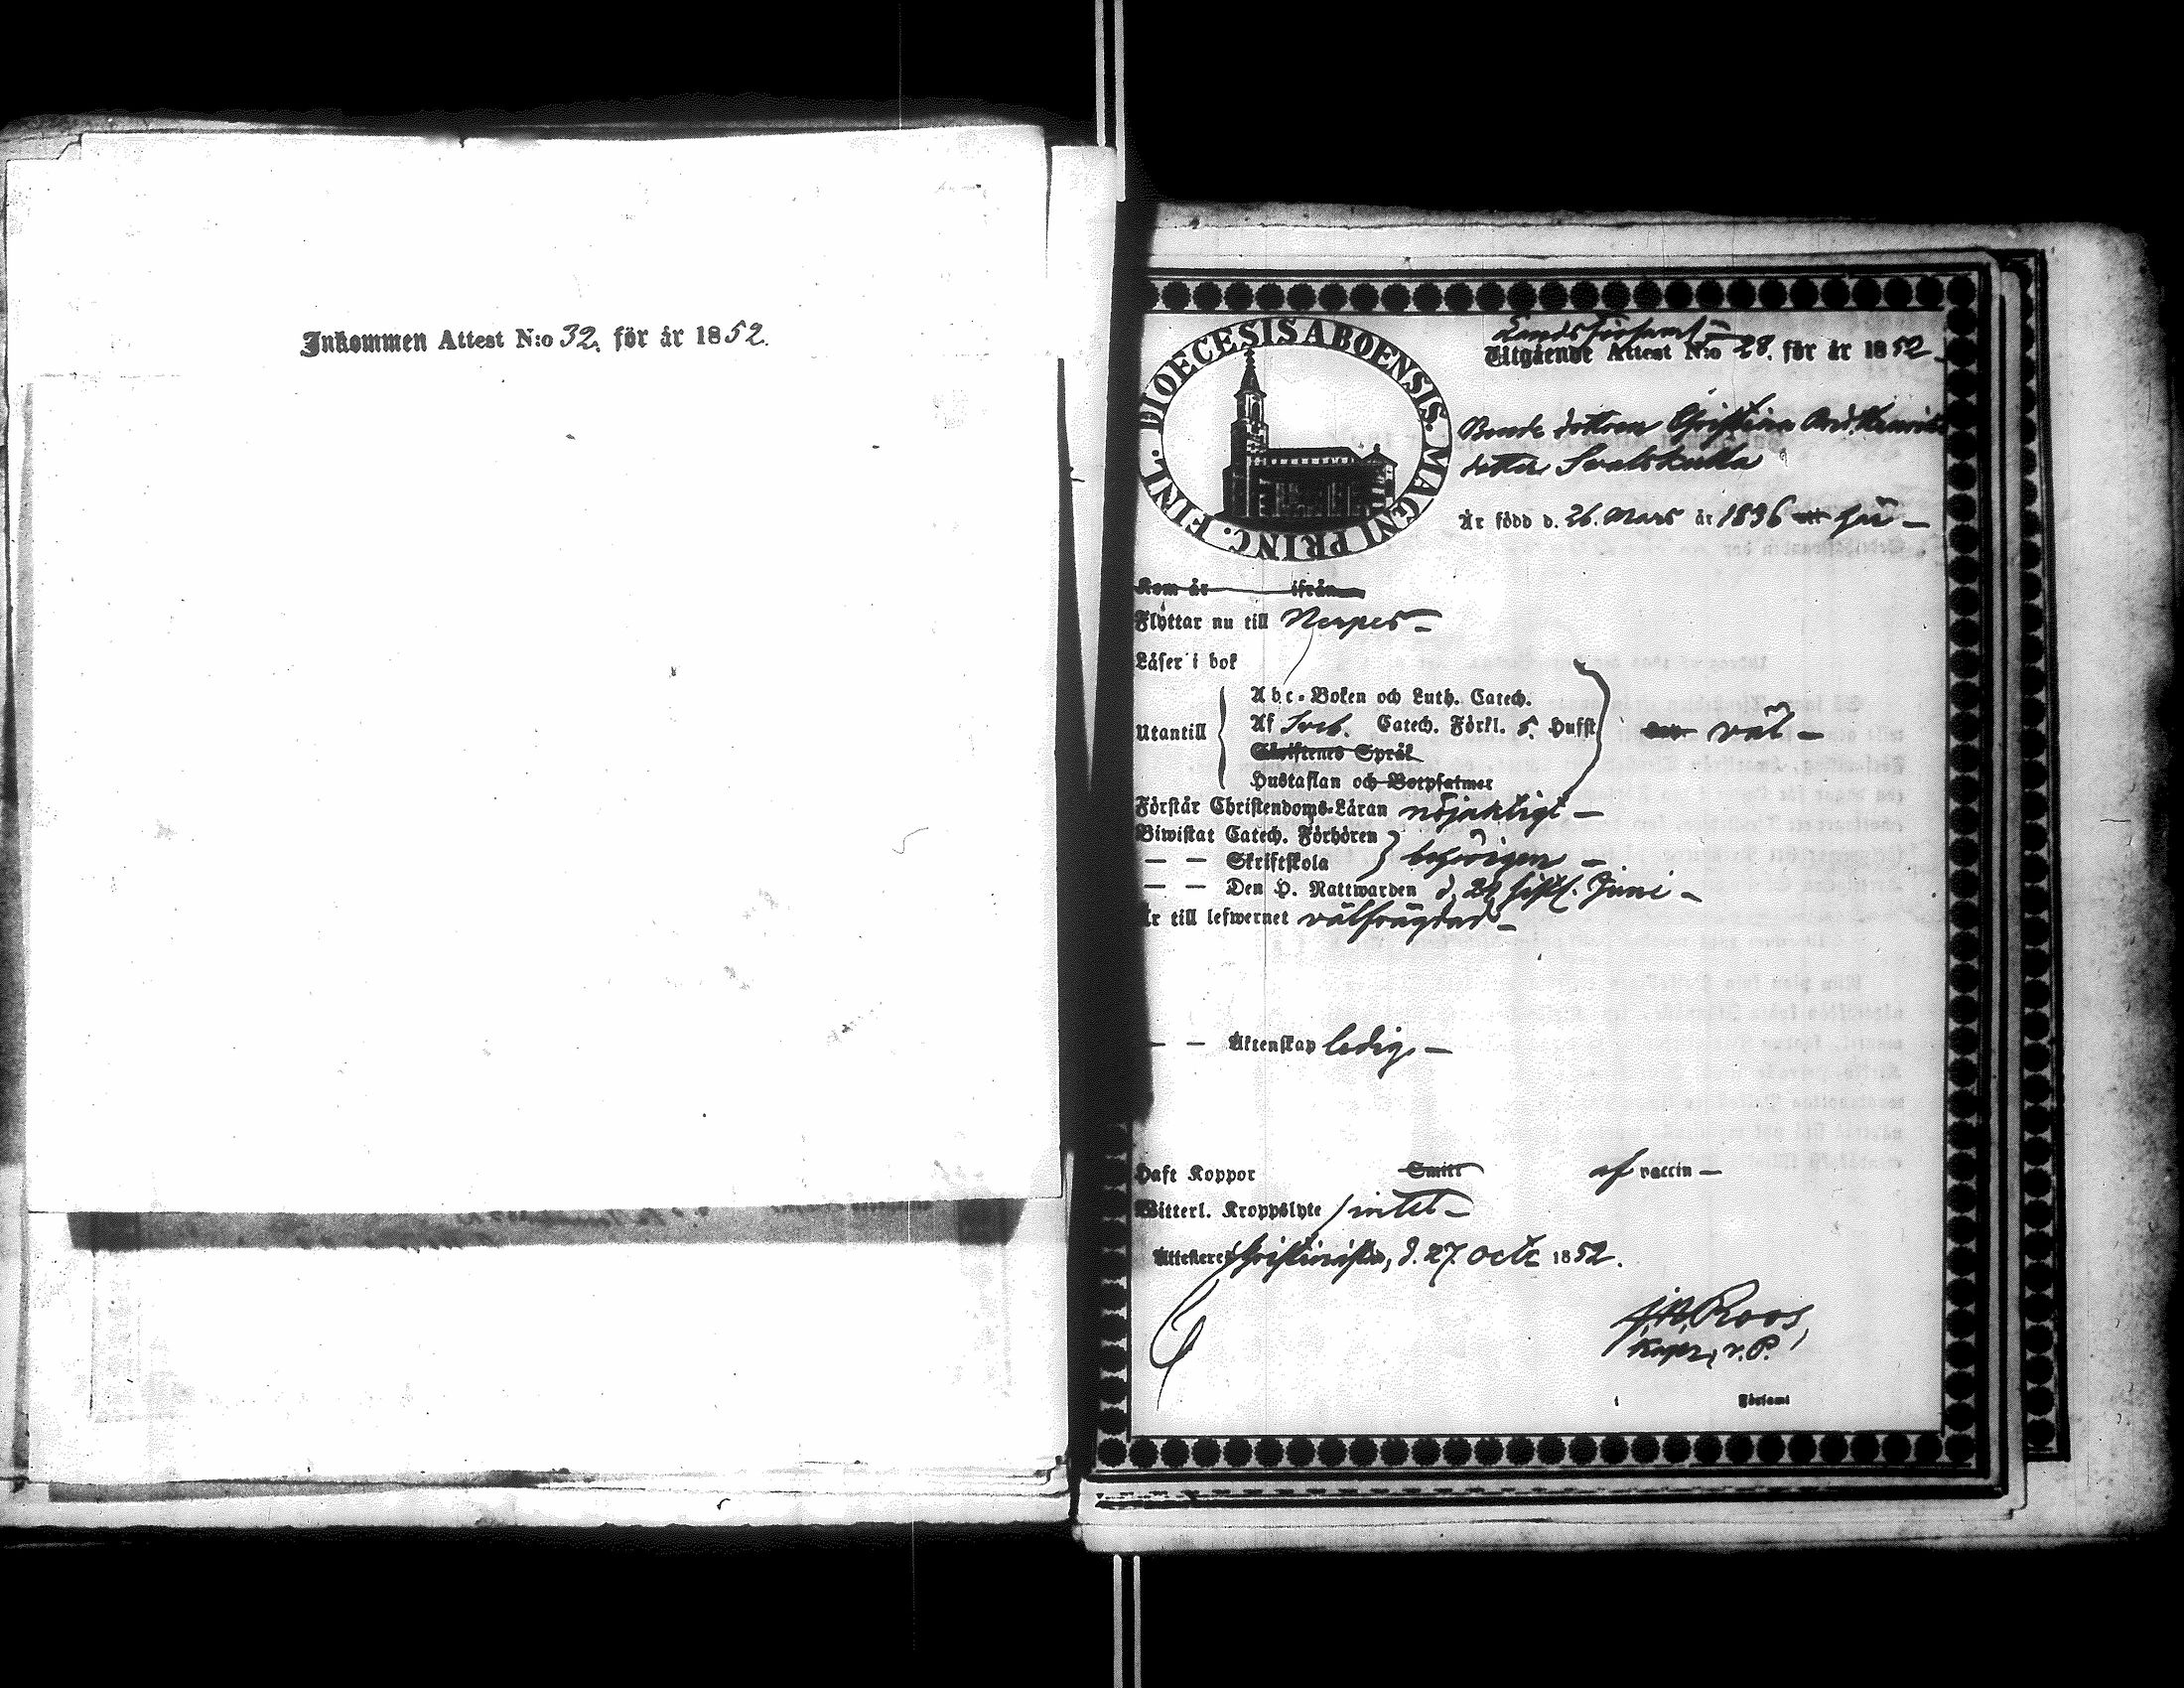 Inkommen Attest N:o 32. för år 1852.
DIOECESIS ABOENSIS. MAGNI PRINC. FINL.
Landsförsaml.
Utgående Attest N:o 28. för år 1852.
Bonde dottren Christina And. Henriks
dotter Svalskulla
Är född d. 26. Mars år 1836 här —
Kom år ifrån
Flyttar nu till Nerpes —
Läser i bok
Abc-Boken och Luth. Catech.
Utantill Af Sveb. Catech. Förkl. 5. Hufst. väl —
Skriftenes Språk
Hustaflan och Botpsalmer
Förstår Christendoms-Läran nöjaktigt —
Biwistat Catech. Förhören
— — Skriftskola behörigen —
— — Den H. Nattwarden d. 29 sistl. Juni —
Är till lefwernet välfrägdad —
— — Äktenskap ledig —
Haft Koppor Smitt af vaccin —
Witterl. Kroppslyte intet —
Attesterer Christinæstad, d. 27. Octr 1852.
J. A. Roos
Kapn, v. P.
i Församl